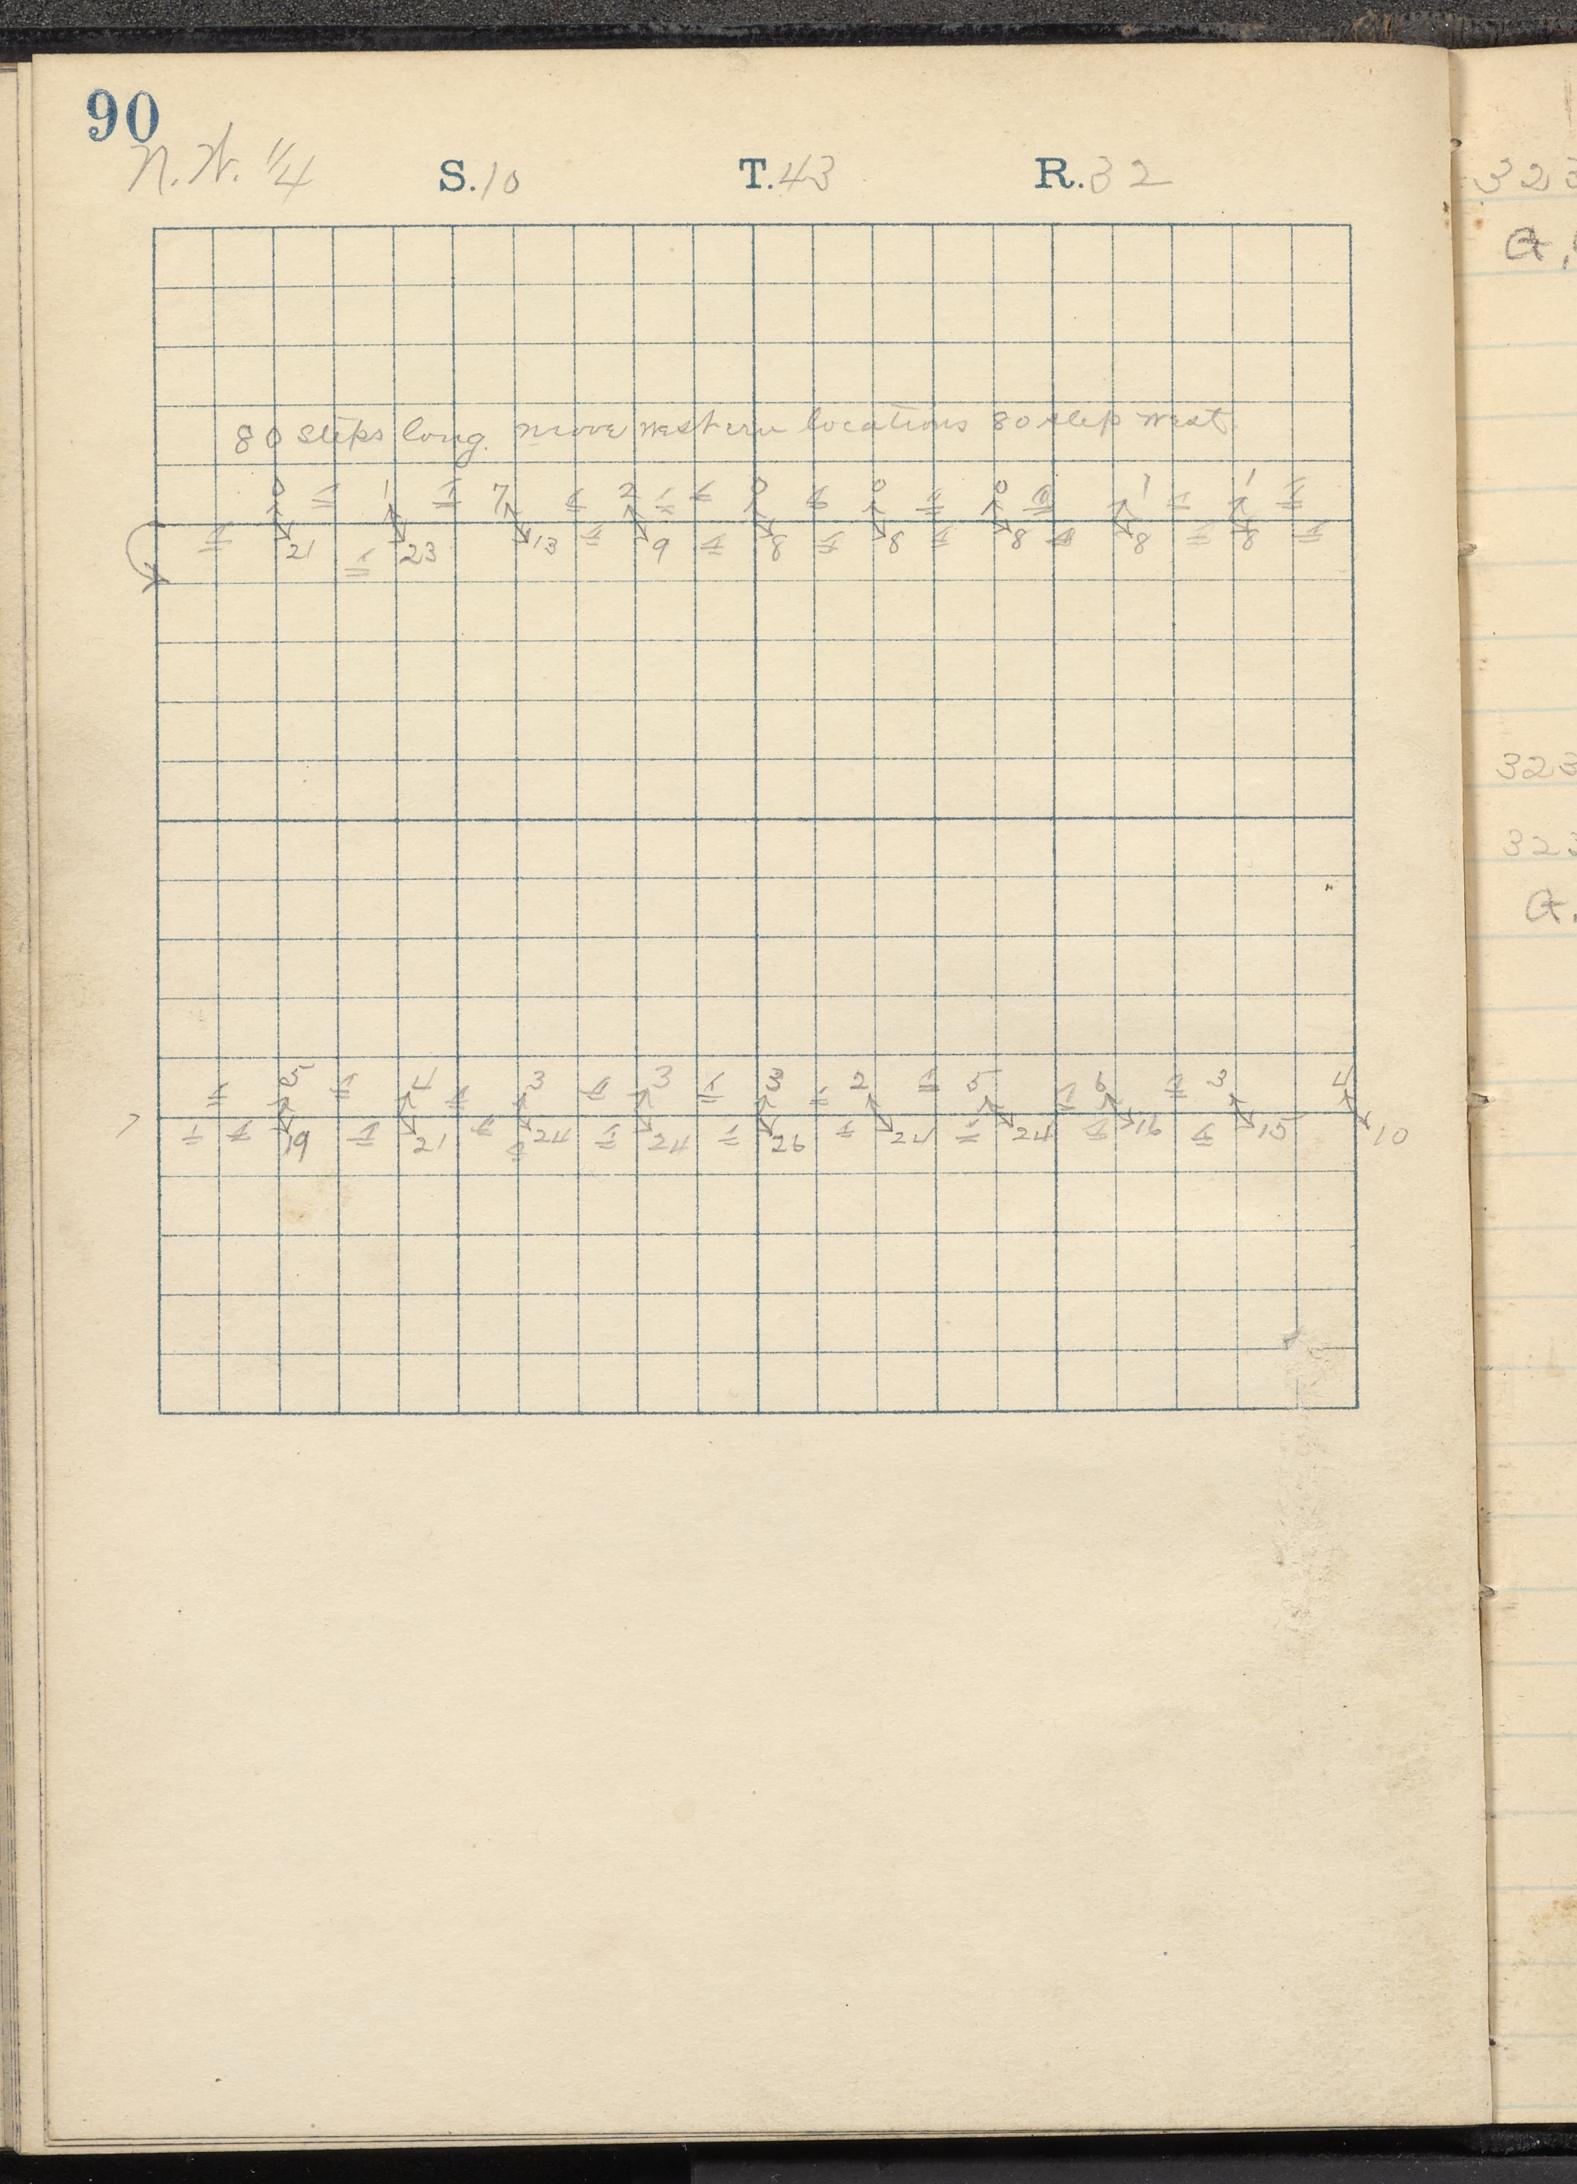 90
N.W. 1/4 S. 10 T. 43 R. 32
80 steps long. move western locations 80 step west.
0 1 7 2 0 0 0 1 1
21 23 13 9 8 8 8 8 8
5 4 3 3 3 2 5 6 3 4
19 21 24 24 26 24 24 16 15 10
323
323
323